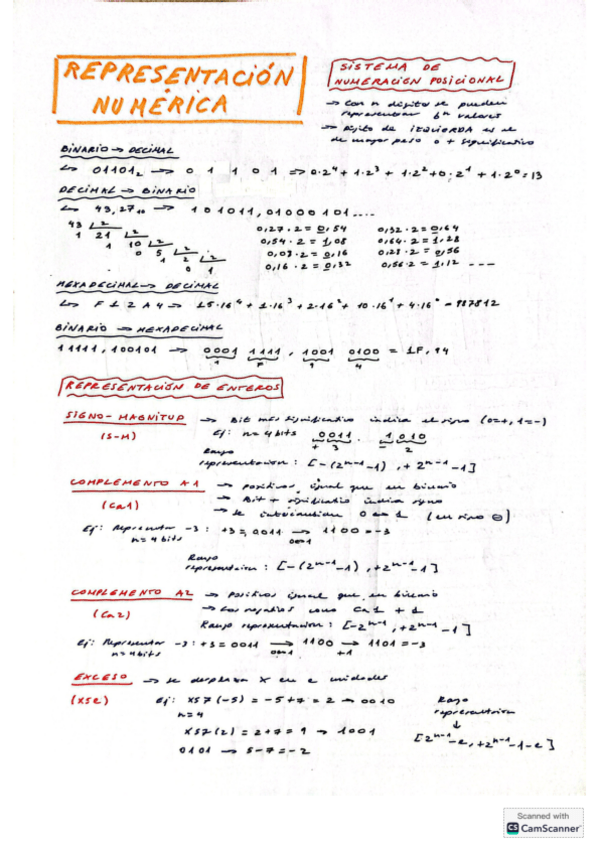 REPRESENTACIÓN
NUMÉRICA
SISTEMA DE
NUMERACIÓN POSICIONAL
→ Con n dígitos se pueden
representar bⁿ valores
→ Dígito de IZQUIERDA es el
de mayor peso o + significativo
BINARIO → DECIMAL
↳ 01101₂ → 0 1 1 0 1 ⇒ 0·2⁴ + 1·2³ + 1·2² + 0·2¹ + 1·2⁰ = 13
DECIMAL → BINARIO
↳ 43,27₁₀ → 101011,01000101....
43 |2
1 21 |2
1 10 |2
0 5 |2
1 2 |2
0 1
0,27 · 2 = 0,54
0,54 · 2 = 1,08
0,08 · 2 = 0,16
0,16 · 2 = 0,32
0,32 · 2 = 0,64
0,64 · 2 = 1,28
0,28 · 2 = 0,56
0,56 · 2 = 1,12 ---
HEXADECIMAL → DECIMAL
↳ F12A4 → 15·16⁴ + 1·16³ + 2·16² + 10·16¹ + 4·16⁰ =
BINARIO → HEXADECIMAL
11111,100101 → 0001 1111 , 1001 0100 = 1F,94
1 F 9 4
REPRESENTACIÓN DE ENTEROS
SIGNO-MAGNITUD → Bit más significativo indica el signo (0=+, 1=-)
(S-M)
Ej: n=4 bits 0011 . 1010
+ 3 - 2
Rango
representacion : [-(2ⁿ⁻¹-1), +2ⁿ⁻¹-1]
COMPLEMENTO A 1 → positivos, igual que en binario
→ Bit + significativo indica signo
(Ca1) → Se intercambian 0 ↔ 1 (en signo ⊖)
Ej: Representar -3 : +3 = 0011 → 1100 = -3
n=4 bits 0↔1
Rango
representacion : [-(2ⁿ⁻¹-1), +2ⁿ⁻¹-1]
COMPLEMENTO A2 → Positivos igual que en binario
(Ca2) → Los negativos como Ca1 + 1
Rango representacion : [-2ⁿ⁻¹, +2ⁿ⁻¹-1]
Ej: Representar -3: +3 = 0011 → 1100 → 1101 = -3
n=4 bits 0↔1 +1
EXCESO → se desplaza X en e unidades
(XSe)
Ej: XS7(-5) = -5+7 = 2 → 0010
n=4
XS7(2) = 2+7 = 9 → 1001
0101 → 5-7 = -2
Rango
representacion
↓
[2ⁿ⁻¹-e, +2ⁿ⁻¹-1-e]
Scanned with
CS CamScanner